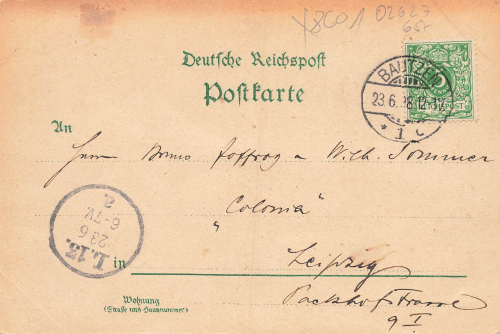 X8C01 02627
65-
Deutsche Reichspost
Postkarte
BAUTZEN
23.6.98.12-1N.
* 1 c
REICHSPOST
An
Herrn Bruno Hoffrog u Wilh. Sommer
„Colonia“
in Leipzig
Packhofstrasse
9 I
L.13.
23 6
6-7V.
a
Wohnung
(Straße und Hausnummer)